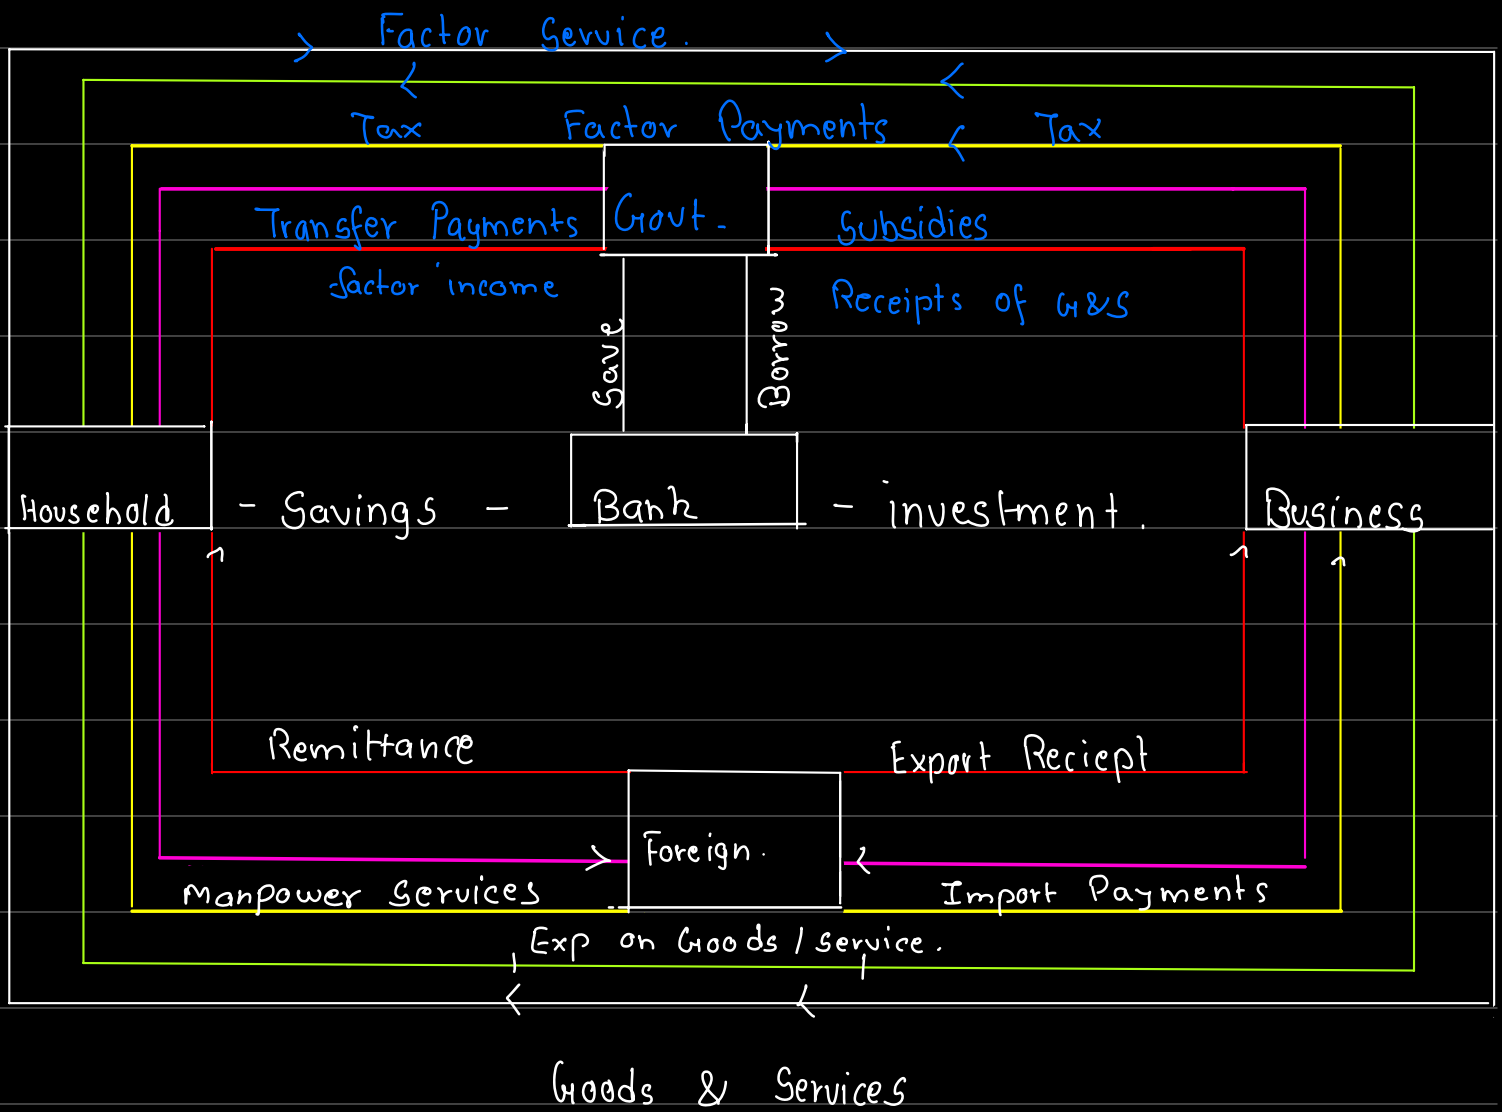 Factor Service.
Tax Factor Payments Tax
Transfer Payments Govt. Subsidies
factor income Receipts of G&S
Save Borrow
Household - Savings - Bank - investment. Business
Remittance Export Reciept
Foreign.
Manpower Services Import Payments
Exp on Goods / service.
Goods & Services